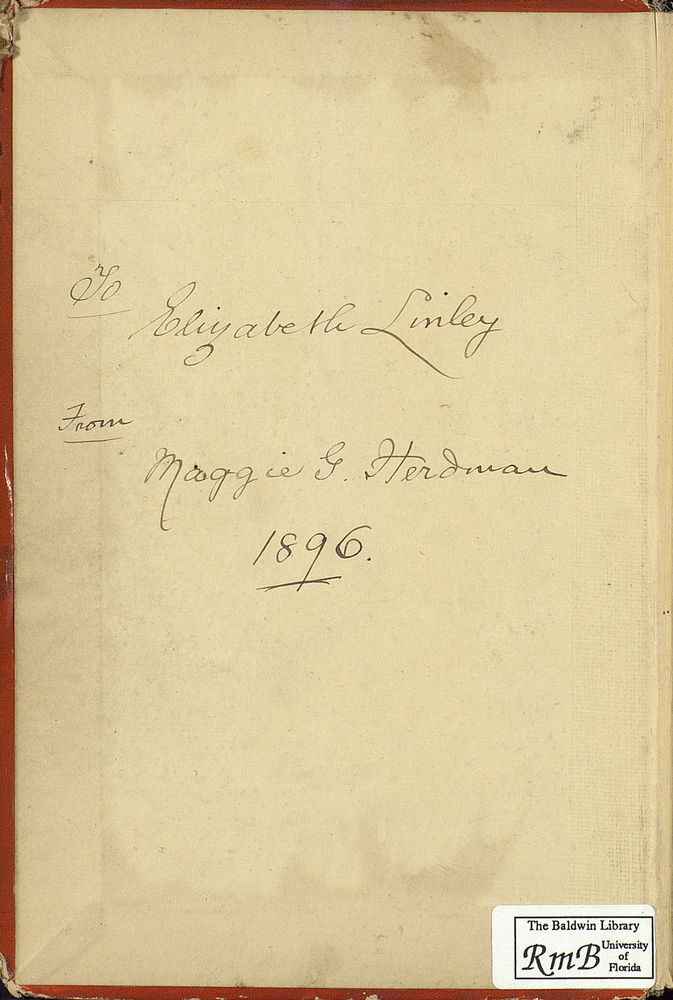 To
Elizabeth Linley
From
Maggie G. Herdman
1896.
The Baldwin Library
RmB University
of
Florida